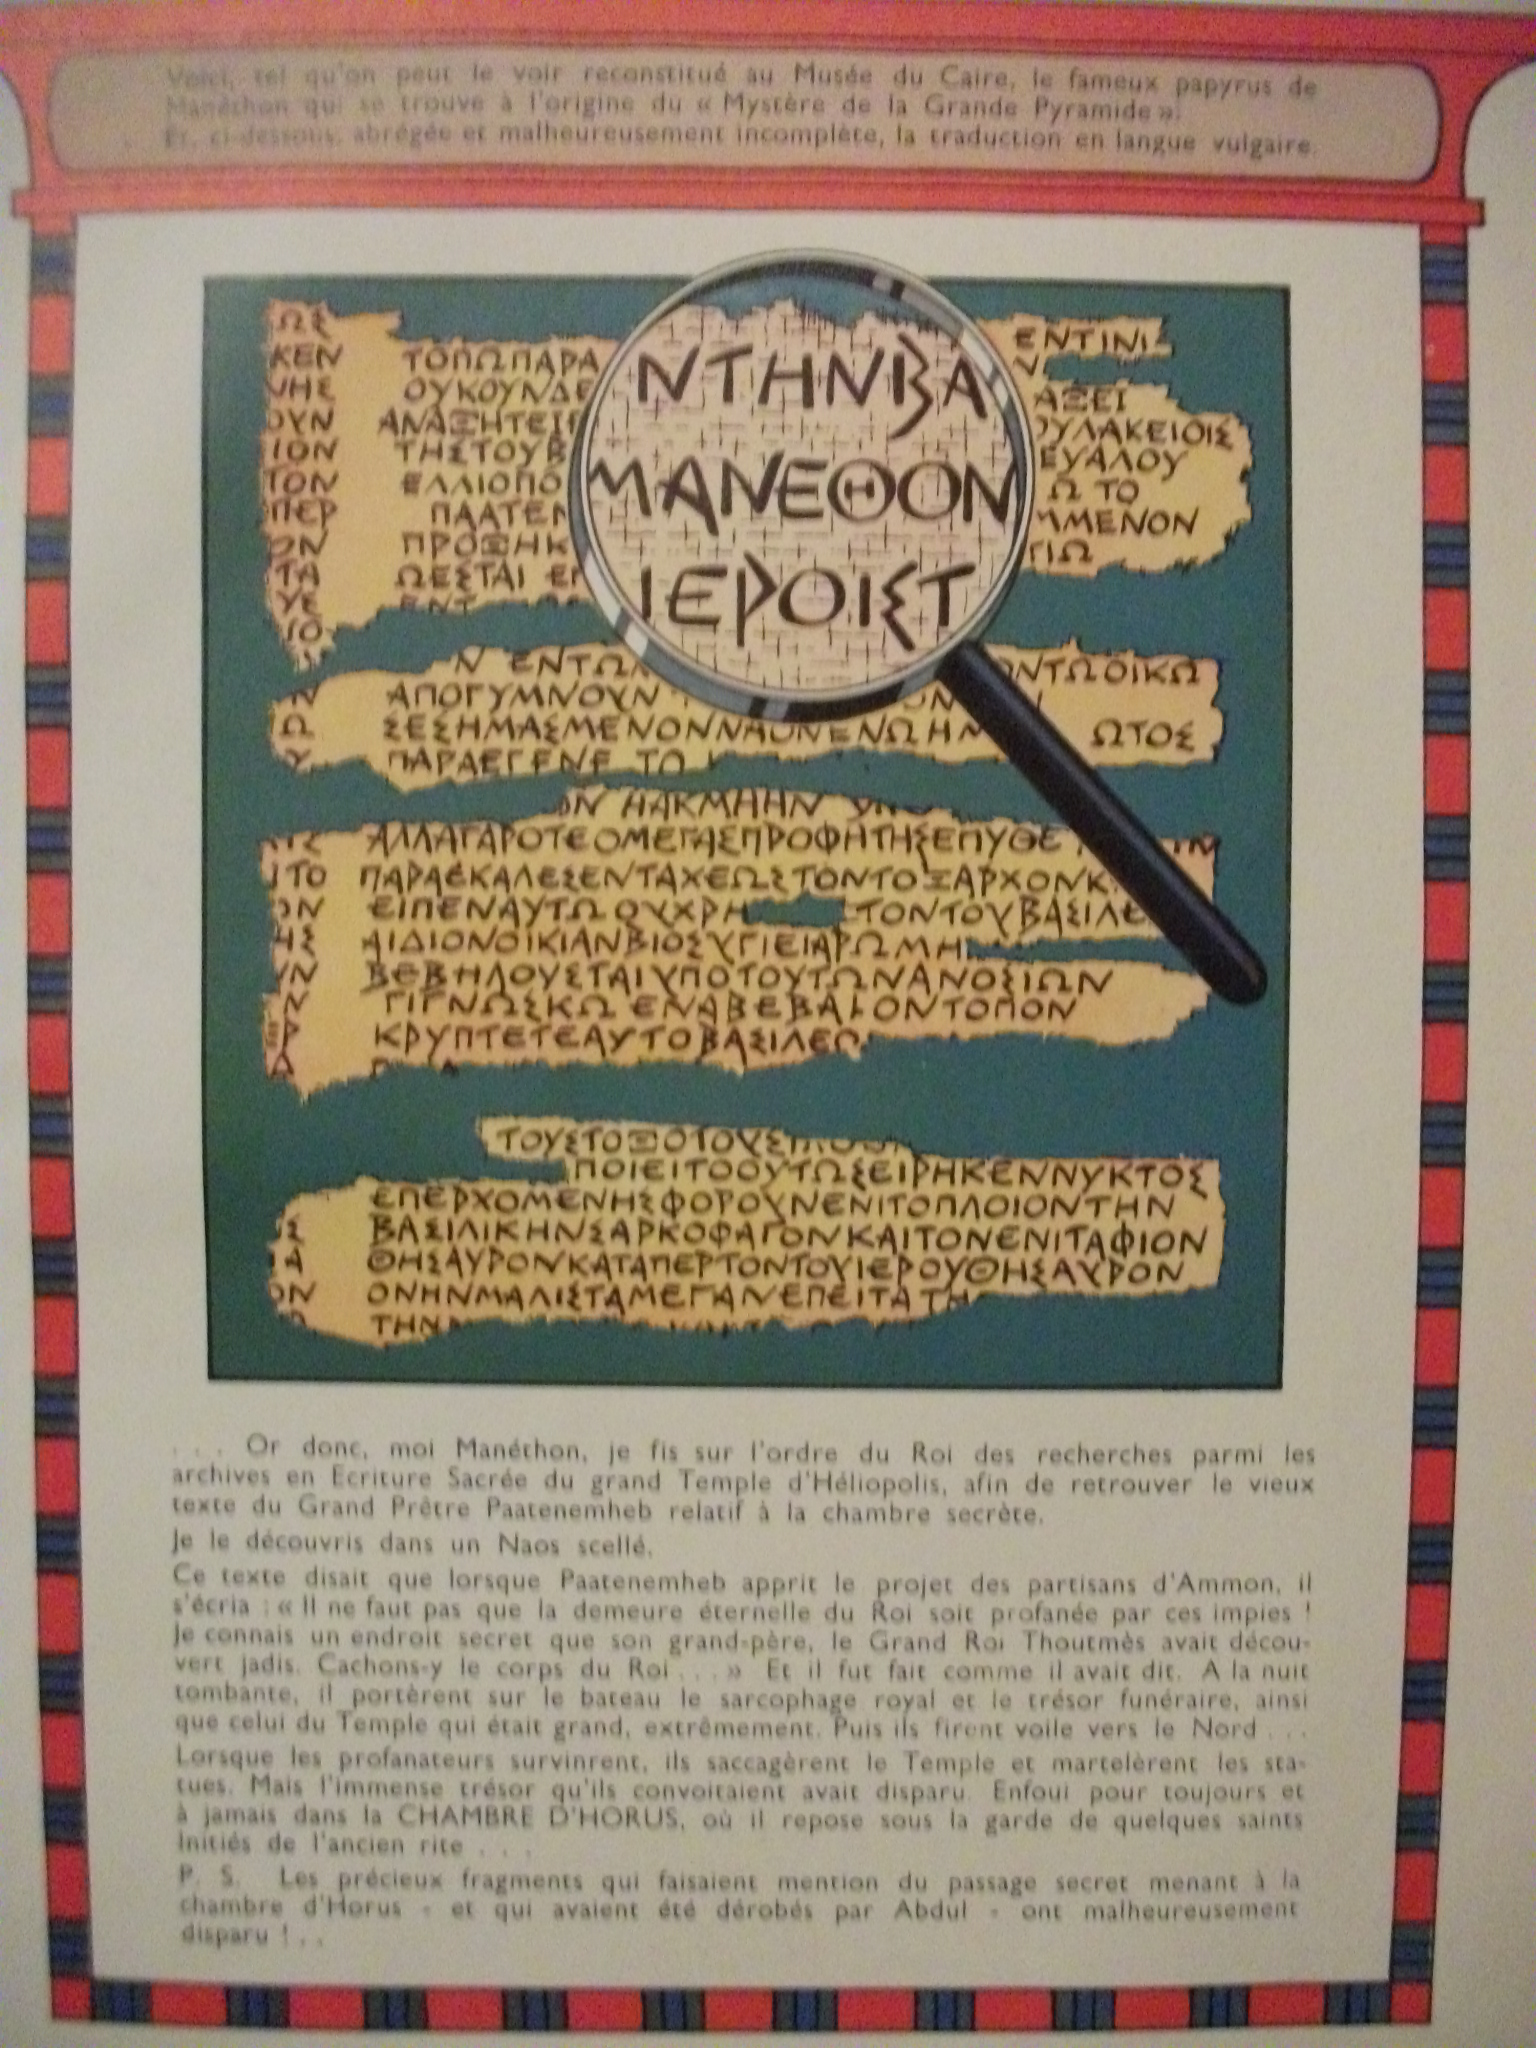 Voici, tel qu'on peut le voir reconstitué au Musée du Caire, le fameux papyrus de
Manéthon qui se trouve à l'origine du « Mystère de la Grande Pyramide ».
Et, ci-dessous, abrégée et malheureusement incomplète, la traduction en langue vulgaire.
ΩΣ
ΕΝΤΙΝΙ
ΚΕΝ ΤΟΠΩΠΑΡΑ
ΝΤΗΝΒΑ
ΝΗΣ ΟΥΚΟΥΝΔΕ
ΑΞΕΙ
ΟΥΝ ΑΝΑΞΗΤΕΙ
ΥΛΑΚΕΙΟΙΣ
ΙΟΝ ΤΗΣΤΟΥΒ
ΕΥΑΛΟΥ
ΤΟΝ ΕΛΛΙΟΠΟ
ΜΑΝΕΘΟΝ
Ω ΤΟ
ΠΕΡ ΠΑΑΤΕΝ
ΜΜΕΝΟΝ
ΟΝ ΠΡΟΞΗΚ
ΓΙΩ
ΤΑ ΩΕΣΤΑΙ ΕΠ
ΙΕΡΟΙΣΤ
ΥΕ
ΙΟ
Ν ΕΝΤΩ ΟΝΤΩΟΙΚΩ
Ν ΑΠΟΓΥΜΝΟΥΝ
Ω ΣΕΣΗΜΑΣΜΕΝΟΝΝΑΟΝΕΝΩΗΝ ΩΤΟΣ
Υ ΠΑΡΑΕΓΕΝΕ ΤΟ
ΟΝ ΗΑΚΜΗΗΝ
ΑΛΛΑΓΑΡΟΤΕΟΜΕΓΑΣΠΡΟΦΗΤΗΣΕΠΥΘΕ
ΙΤΟ ΠΑΡΑΕΚΑΛΕΣΕΝΤΑΧΕΩΣΤΟΝΤΟΞΑΡΧΟΝΚ
ΟΝ ΕΙΠΕΝΑΥΤΩΟΥΧΡΗ ΤΟΝΤΟΥΒΑΣΙΛΕ
ΗΣ ΑΙΔΙΟΝΟΙΚΙΑΝΒΙΟΣΥΓΙΕΙΑΡΩΜΗ
ΥΝ ΒΕΒΗΛΟΥΣΤΑΙΥΠΟΤΟΥΤΩΝΑΝΟΣΙΩΝ
Ν ΓΙΓΝΩΣΚΩ ΕΝΑΒΕΒΑΙΟΝΤΟΠΟΝ
Ρ ΚΡΥΠΤΕΤΕΑΥΤΟΒΑΣΙΛΕΩ
Α
ΤΟΥΣΤΟΞΟΤΟΥΣ
ΠΟΙΕΙΤΟΟΥΤΩΣΕΙΡΗΚΕΝΝΥΚΤΟΣ
ΕΠΕΡΧΟΜΕΝΗΣΦΟΡΟΥΝΕΝΙΤΟΠΛΟΙΟΝΤΗΝ
Σ ΒΑΣΙΛΙΚΗΝΣΑΡΚΟΦΑΓΟΝΚΑΙΤΟΝΕΝΙΤΑΦΙΟΝ
ΙΑ ΘΗΣΑΥΡΟΝΚΑΤΑΠΕΡΤΟΝΤΟΥΙΕΡΟΥΘΗΣΑΥΡΟΝ
ΟΝ ΟΝΗΝΜΑΛΙΣΤΑΜΕΓΑΝΕΠΕΙΤΑΤΗ
ΤΗΝ
. . . Or donc, moi Manéthon, je fis sur l'ordre du Roi des recherches parmi les
archives en Ecriture Sacrée du grand Temple d'Héliopolis, afin de retrouver le vieux
texte du Grand Prêtre Paatenemheb relatif à la chambre secrète.
Je le découvris dans un Naos scellé.
Ce texte disait que lorsque Paatenemheb apprit le projet des partisans d'Ammon, il
s'écria : « Il ne faut pas que la demeure éternelle du Roi soit profanée par ces impies !
Je connais un endroit secret que son grand-père, le Grand Roi Thoutmès avait décou-
vert jadis. Cachons-y le corps du Roi . . . » Et il fut fait comme il avait dit. A la nuit
tombante, il portèrent sur le bateau le sarcophage royal et le trésor funéraire, ainsi
que celui du Temple qui était grand, extrêmement. Puis ils firent voile vers le Nord . . .
Lorsque les profanateurs survinrent, ils saccagèrent le Temple et martelèrent les sta-
tues. Mais l'immense trésor qu'ils convoitaient avait disparu. Enfoui pour toujours et
à jamais dans la CHAMBRE D'HORUS, où il repose sous la garde de quelques saints
Initiés de l'ancien rite . . .
P. S. Les précieux fragments qui faisaient mention du passage secret menant à la
chambre d'Horus - et qui avaient été dérobés par Abdul - ont malheureusement
disparu ! . .